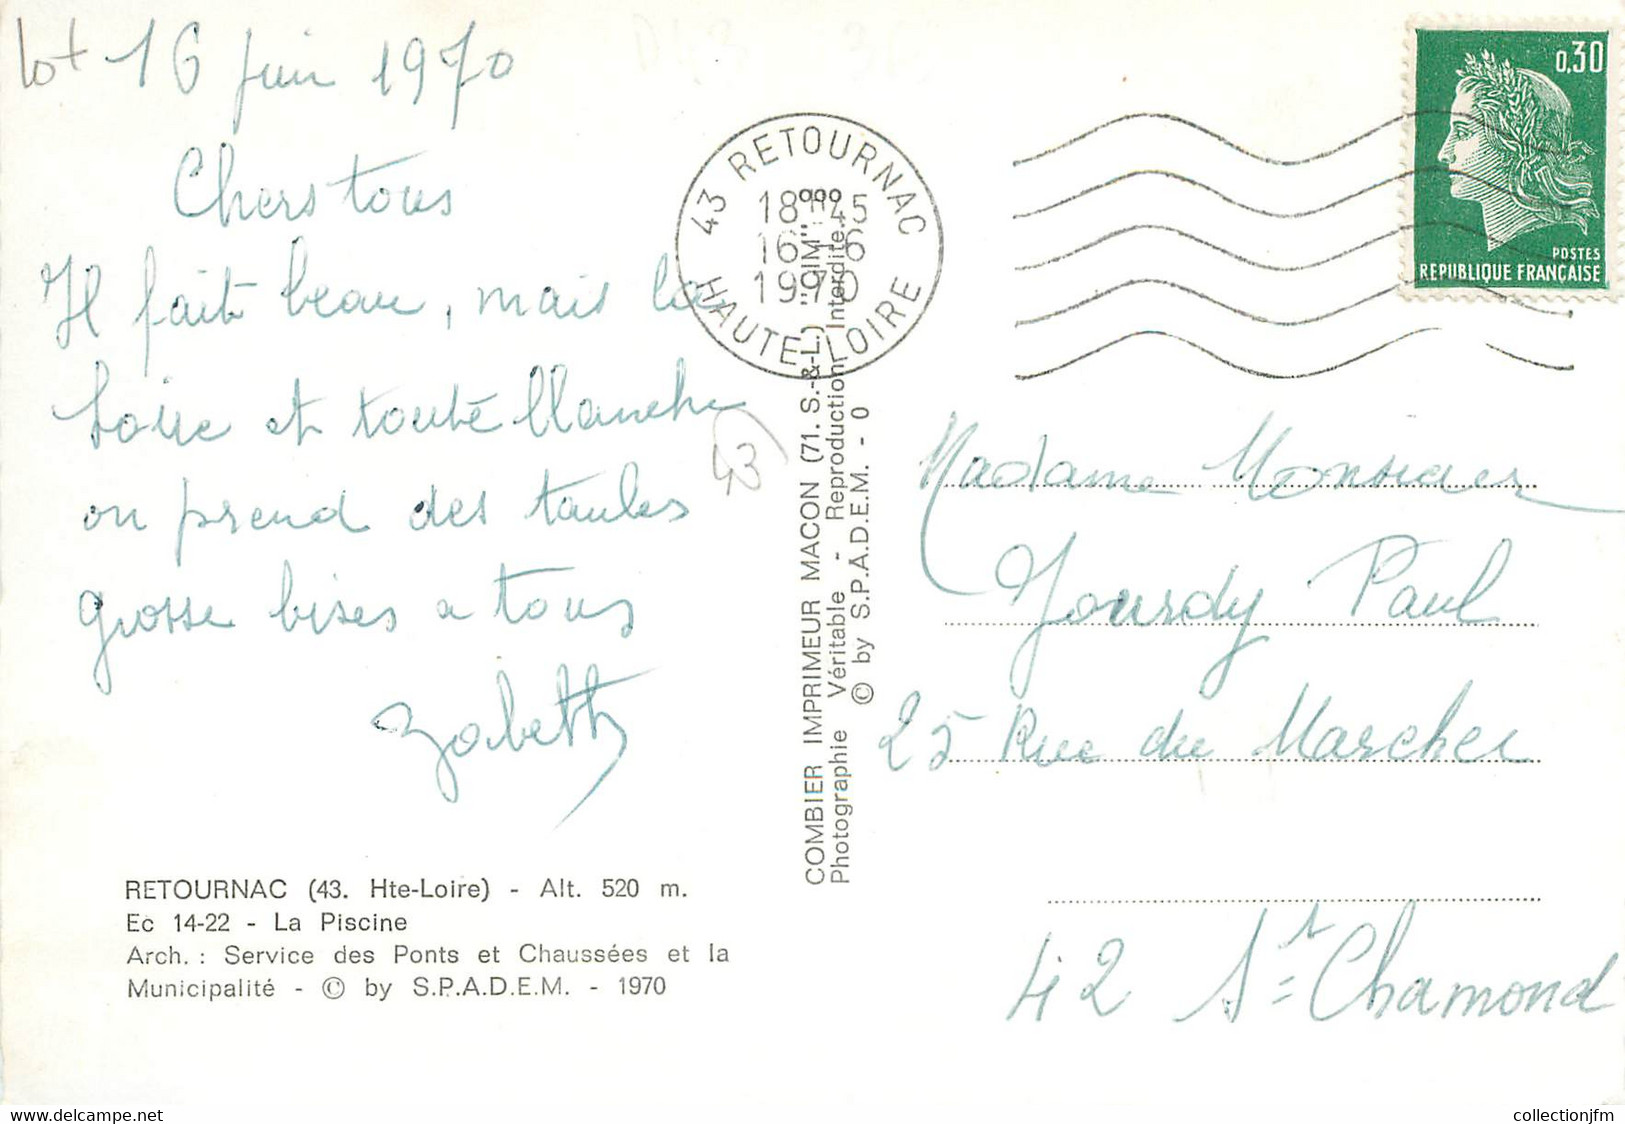 lot 16 juin 1970
Chers tous
Il fait beau, mais la
Loire et toute blanche
on prend des taules
grosse bises a tous
Zabeth
43
RETOURNAC (43. Hte-Loire) - Alt. 520 m.
Ec 14-22 - La Piscine
Arch. : Service des Ponts et Chaussées et la
Municipalité - © by S.P.A.D.E.M. - 1970
COMBIER IMPRIMEUR MACON (71. S.-&-L.) "CIM"
Photographie Véritable - Reproduction Interdite
© by S.P.A.D.E.M. - 0
43 RETOURNAC
18H45
16-6
1970
HAUTE-LOIRE
0,30
POSTES
REPUBLIQUE FRANÇAISE
Madame Monsieur
Jourdy Paul
25 Rue du Marcher
42 St-Chamond
www.delcampe.net
collectionjfm